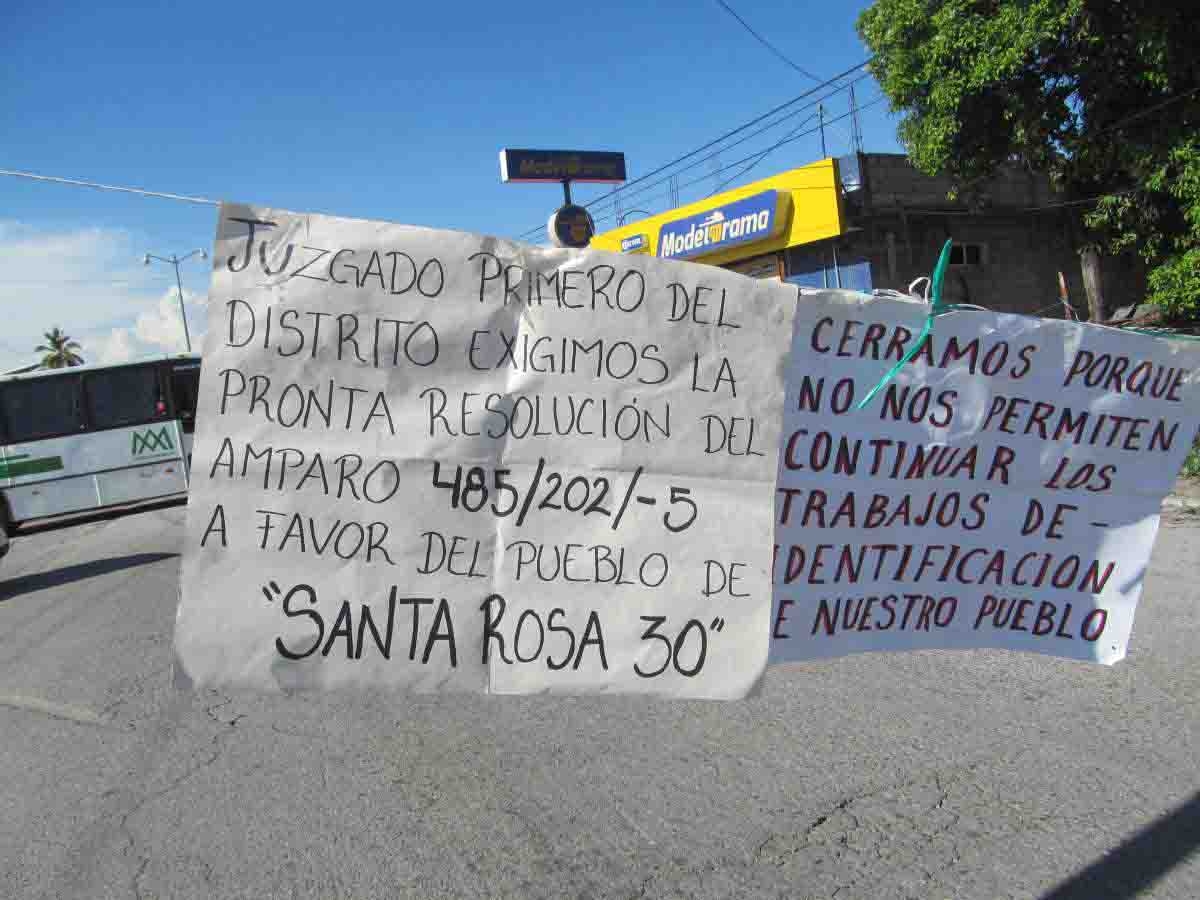 Modelorama
Corona
Modelorama
JUZGADO PRIMERO DEL
DISTRITO EXIGIMOS LA
PRONTA RESOLUCIÓN DEL
AMPARO 485/202/-5
A FAVOR DEL PUEBLO DE
"SANTA ROSA 30"
CERRAMOS PORQUE
NO NOS PERMITEN
CONTINUAR LOS
TRABAJOS DE-
IDENTIFICACION
E NUESTRO PUEBLO